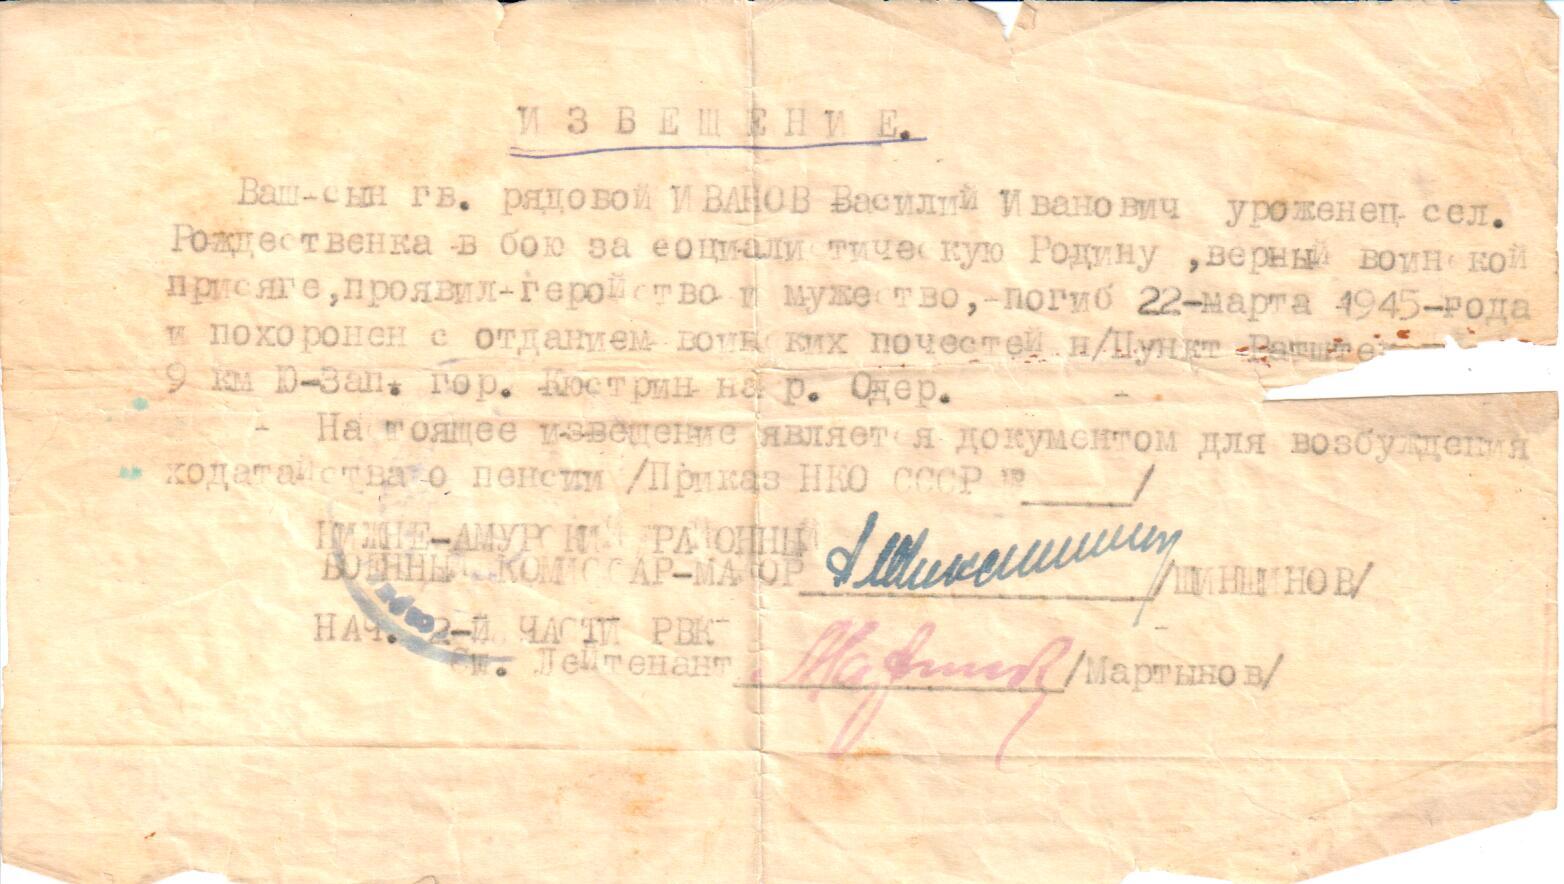 ИЗВЕЩЕНИЕ.
Ваш-сын гв. рядовой ИВАНОВ Василий Иванович уроженец сел.
Рождественка в бою за социалистическую Родину ,верный воинской
присяге,проявил-геройство и мужество,-погиб 22-марта 1945-года
и похоронен с отданием воинских почестей н/Пункт
9 км Ю-Зап. гор. Кюстрин на р. Одер.
Настоящее извещение является документом для возбуждения
ходатайства о пенсии /Приказ НКО СССР № ____/
НИЖНЕ-АМУРСКИЙ РАЙОННЫЙ
ВОЕННЫЙ КОМИССАР-МАЙОР ________/ШИНШИНОВ/
НАЧ. 2-Й ЧАСТИ РВК
Ст. Лейтенант ________/Мартынов/